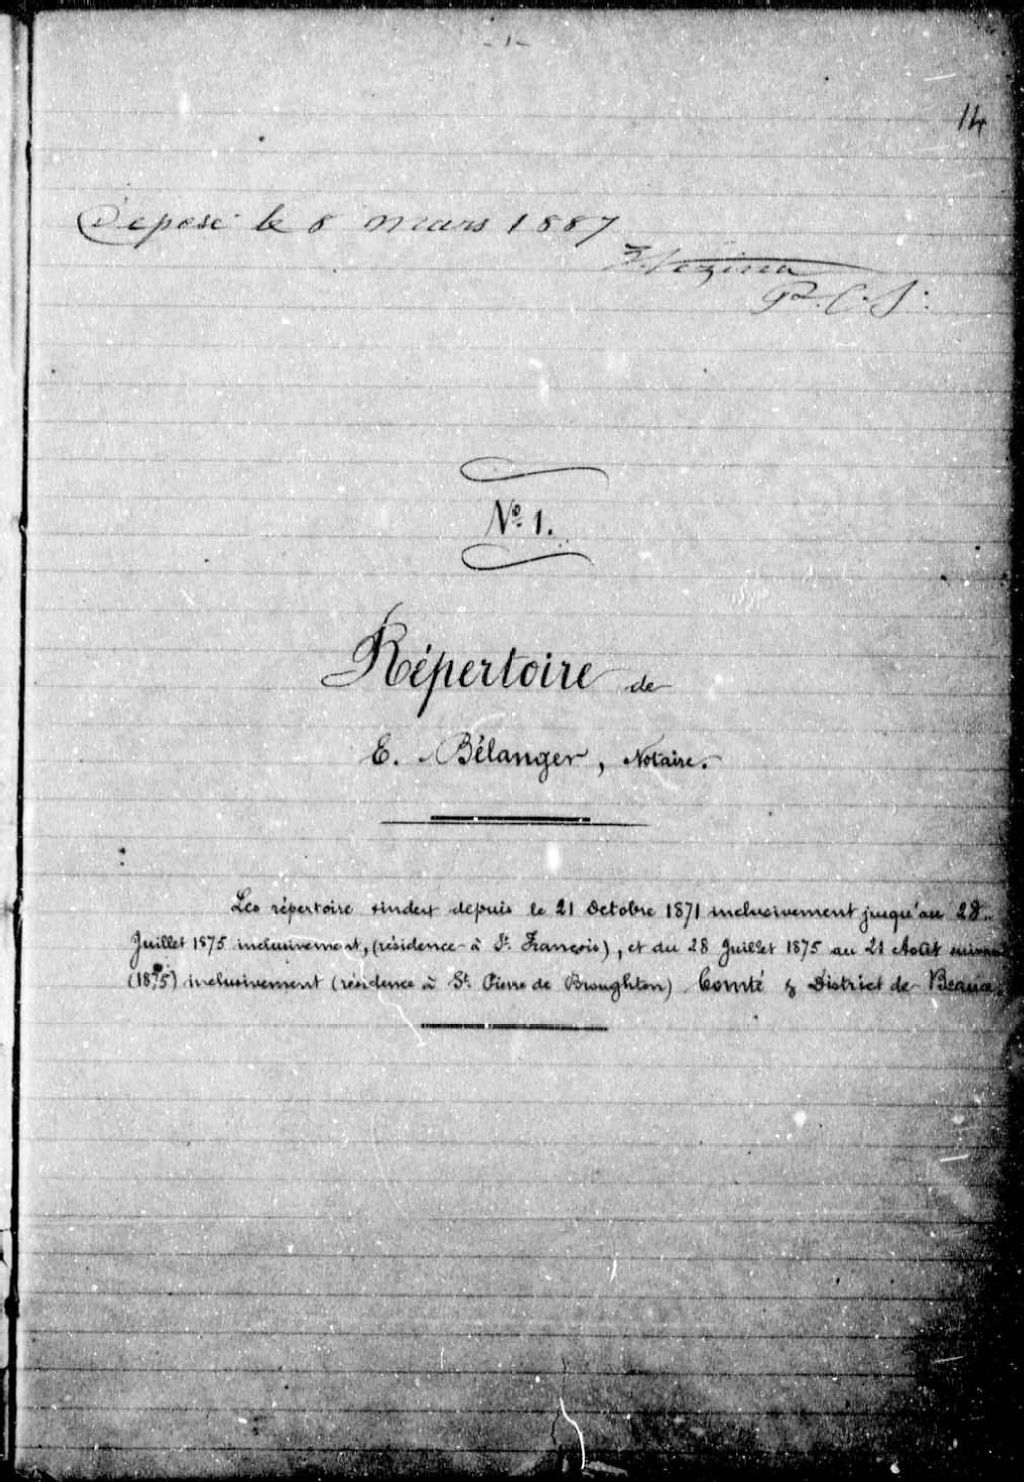 - 1 -
14
Déposé le 8 mars 1887
Vezina
P. C. S.
Nº 1.
Répertoire de
E. Bélanger, Notaire.
répertoire s'index depuis le 21 Octobre 1871 inclusivement jusqu'au 28
Juillet 1875 inclusivement, (résidence à St. François), et du 28 Juillet 1875 au 21 Août suivant
(1875) inclusivement (résidence à St. Pierre de Broughton) Comté & District de Beauce.